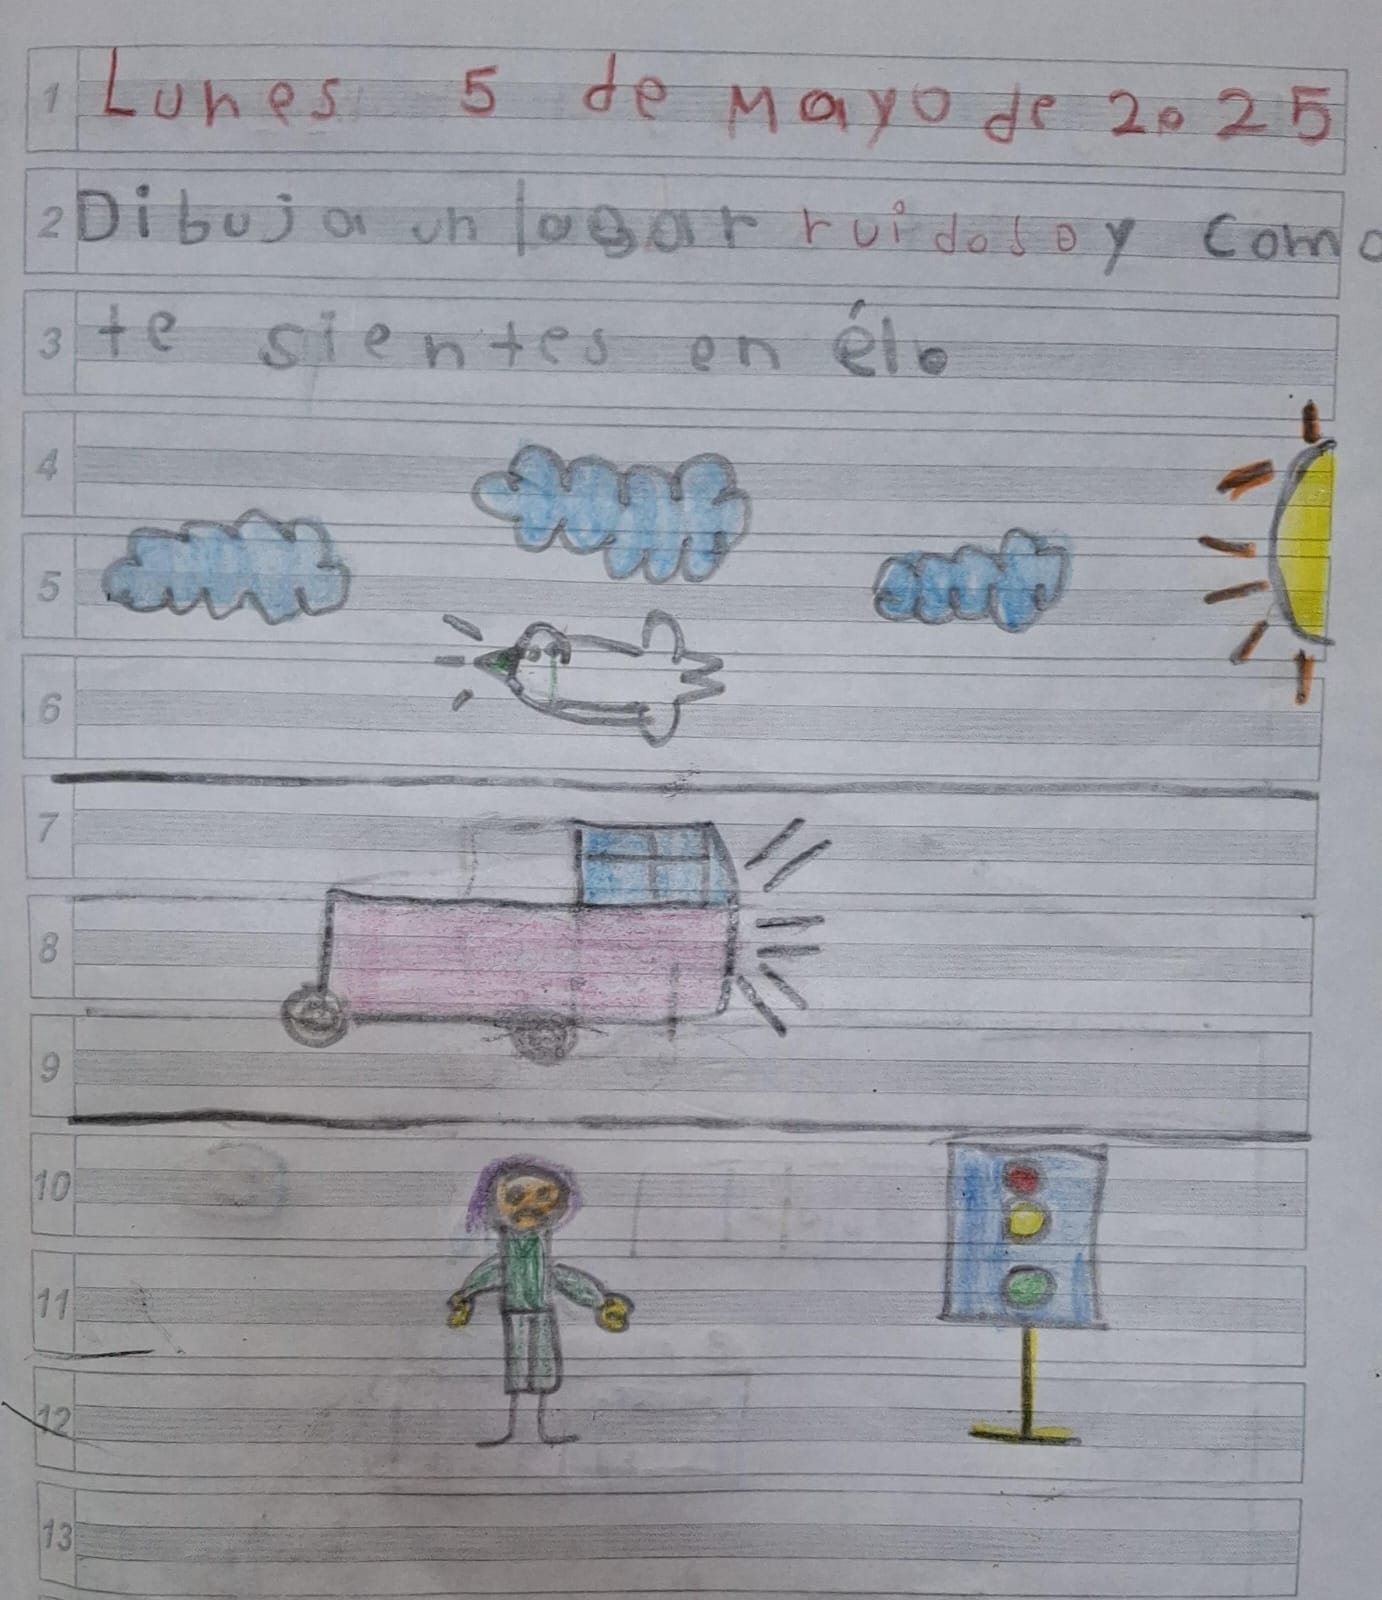 1 Lunes 5 de Mayo de 2025
2 Dibuja un lugar ruidoso y como
3 te sientes en él.
4
5
6
7
8
9
10
11
12
13